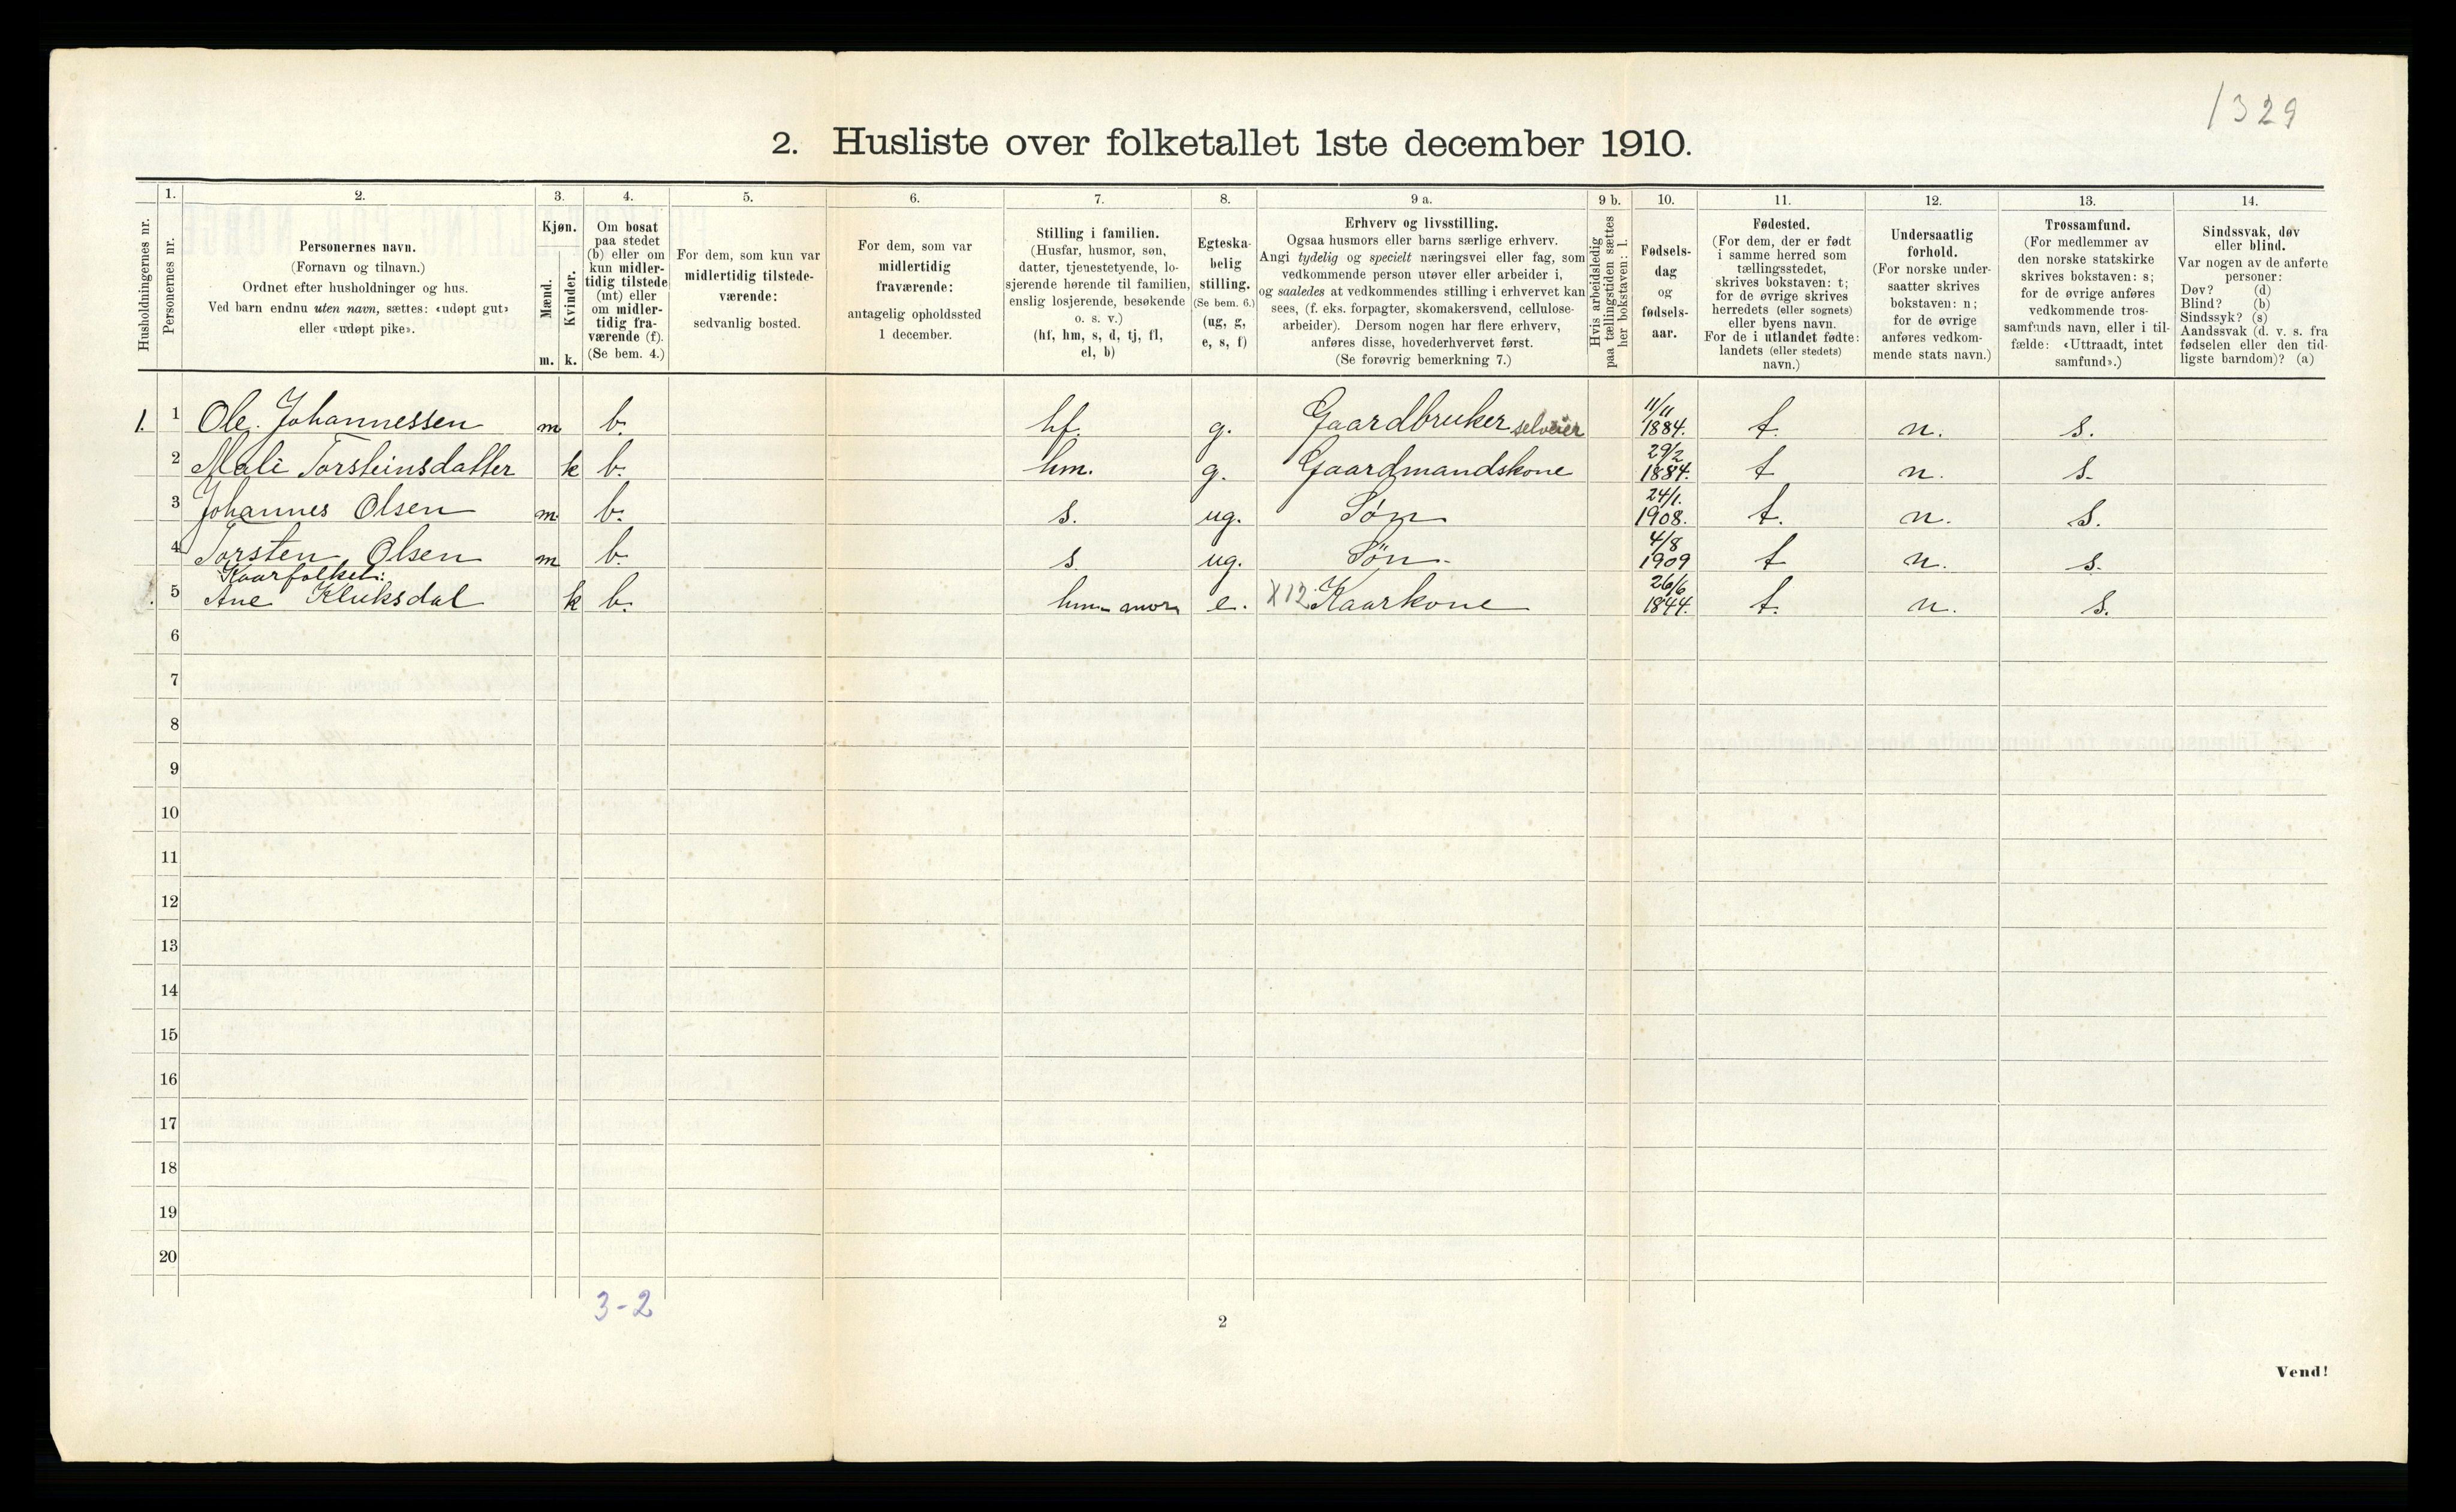 1329
2. Husliste over folketallet 1ste december 1910.
Husholdningernes nr.
1.
Personernes nr.
2.
Personernes navn.
(Fornavn og tilnavn.)
Ordnet efter husholdninger og hus.
Ved barn endnu uten navn, sættes: «udøpt gut»
eller «udøpt pike».
3.
Kjøn.
Mænd.
Kvinder.
m. k.
4.
Om bosat
paa stedet
(b) eller om
kun midler-
tidig tilstede
(mt) eller
om midler-
tidig fra-
værende (f).
(Se bem. 4.)
5.
For dem, som kun var
midlertidig tilstede-
værende:
sedvanlig bosted.
6.
For dem, som var
midlertidig
fraværende:
antagelig opholdssted
1 december.
7.
Stilling i familien.
(Husfar, husmor, søn,
datter, tjenestetyende, lo-
sjerende hørende til familien,
enslig losjerende, besøkende
o. s. v.)
(hf, hm, s, d, tj, fl,
el, b)
8.
Egteska-
belig
stilling.
(Se bem. 6.)
(ug, g,
e, s, f)
9 a.
Erhverv og livsstilling.
Ogsaa husmors eller barns særlige erhverv.
Angi tydelig og specielt næringsvei eller fag, som
vedkommende person utøver eller arbeider i,
og saaledes at vedkommendes stilling i erhvervet kan
sees, (f. eks. forpagter, skomakersvend, cellulose-
arbeider). Dersom nogen har flere erhverv,
anføres disse, hovederhvervet først.
(Se forøvrig bemerkning 7.)
9 b.
Hvis arbeidsledig
paa tællingstiden sættes
her bokstaven: l.
10.
Fødsels-
dag
og
fødsels-
aar.
11.
Fødested.
(For dem, der er født
i samme herred som
tællingsstedet,
skrives bokstaven: t;
for de øvrige skrives
herredets (eller sognets)
eller byens navn.
For de i utlandet fødte:
landets (eller stedets)
navn.)
12.
Undersaatlig
forhold.
(For norske under-
saatter skrives
bokstaven: n;
for de øvrige
anføres vedkom-
mende stats navn.)
13.
Trossamfund.
(For medlemmer av
den norske statskirke
skrives bokstaven: s;
for de øvrige anføres
vedkommende tros-
samfunds navn, eller i til-
fælde: «Uttraadt, intet
samfund».)
14.
Sindssvak, døv
eller blind.
Var nogen av de anførte
personer:
Døv? (d)
Blind? (b)
Sindssyk? (s)
Aandssvak (d. v. s. fra
fødselen eller den tid-
ligste barndom)? (a)
1. 1 Ole Johannessen m b. hf. g. Gaardbruker selveier 11/11 1884. t. n. s.
2 Mali Torsteinsdatter k b. hm. g. Gaardmandskone 29/2 1884. t n. s.
3 Johannes Olsen m. b. s. ug. Søn 24/1. 1908. t. n. s.
4 Torsten Olsen m b. s ug. Søn 4/8 1909 t n. s.
Kaarfolket:
5 Ane Kluksdal k b. hm mor e. X12 Kaarkone 26/6 1844. t. n. s.
6
7
8
9
10
11
12
13
14
15
16
17
18
19
20
3-2
2
Vend!